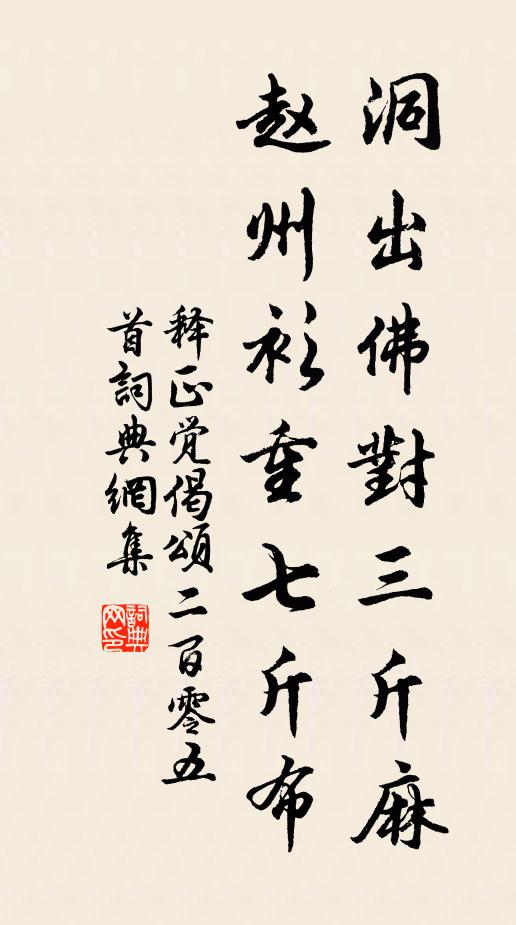 洞出佛對三斤麻
赵州衫重七斤布
释正覺偈頌二百零五
首詞典網集
詞典
网印